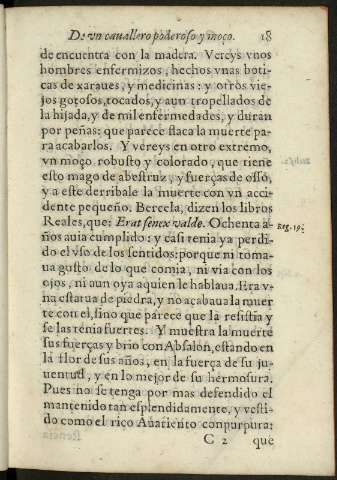 De vn cauallero poderoso y moço. 18
de encuentra con la madera. Vereys vnos
hombres enfermizos, hechos vnas boti-
cas de xaraues, y medicinas: y otros vie-
jos gotosos, tocados, y aun tropellados de
la hijada, y de mil enfermedades, y duran
por peñas: que parece flaca la muerte pa-
ra acabarlos. Y vereys en otro extremo,
vn moço robusto y colorado, que tiene
estomago de abestruz, y fuerças de osso,
y a este derribale la muerte con vn acci-
dente pequeño. Bercela, dizen los libros
Reales, que: Erat senex walde. Ochenta a-
Reg. 19.
ños auia cumplido: y casi tenia ya perdi-
do el vso de los sentidos: porque ni toma-
ua gusto de lo que comia, ni via con los
ojos, ni aun oya aquien le hablaua. Era v-
na estatua de piedra, y no acabaua la muer
te con el, sino que parece que la resistia y
se las tenia fuertes. Y muestra la muerte
sus fuerças y brio con Absalon, estando en
la flor de sus años, en la fuerça de su ju-
uentud, y en lo mejor de su hermosura.
Pues no se tenga por mas defendido el
mantenido tan esplendidamente, y vesti-
do como el rico Auariento con purpura:
C 2 que